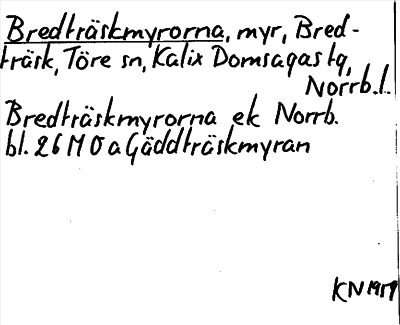 Bredträskmyrorna, myr, Bred-
träsk, Töre sn, Kalix Domsagas tg,
Norrb. l.
Bredträskmyrorna ek Norrb.
bl. 26 M O a Gäddträskmyran
KN 1959